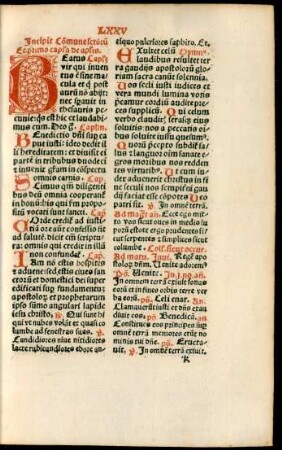 LXXV
Incipit Cõmune scrõtũ
Et primo capl'a de apl'is.
Beatus Capl'z
vir qui inuen
tus é sine macu
la et qui post
aurũ nõ abijt
nec sperauit in
thesauris pe
cunie: ds est hic et laudabi
mus eum. Deo g. Capłm.
Benedictio dñi super ca
put iusti: ideo dedit il
li hereditatem: et diuisit il
li partē in tribubus duodecī
et inuenit gram in cōspectu
omnis carnis. Capłm.
Scimus qm̃ diligenti
bus deũ omnia coopera
tur in bonũ: his qui fm pro
positũ vocati sunt sancti. Cap.
Corde creditur ad iusti
ciã ore aut confessio fit
ad salutē. dicit em̃ scriptura
omnis qui credit in illũ
non confundať. Cap.
Iam non estis hospites et
aduene: sed estis ciues san
ctorum et domestici dei super
edificati super fundamentũ
apostolorũ et prophetarum
ipso sũmo angulari lapide
iesu christo. ꝶ. Qui sunt hi
qui vt nubes volãt et quasi co
lumbe ad fenestras suas. ꝟ.
Candidiores niue nitidiores
lacte rubicundiores ebore an
tiquo pulcriores saphiro. Et.
Exultet celũ Hymn⁹.
laudibus resultet ter
ra gaudijs apostolorũ glo
riam sacra canũt solennia.
Vos secli iusti iudices et
vera mundi lumina votis
precamur cordiũ audite pre
ces supplicũ. Qui celum
verbo clauditis serasqz eius
soluitis: nos a peccatis om
nibus soluite iussu quesum⁹.
Quorũ precepto subditur sa
lus et languor oĩm: sanate e
gros moribus nos redden
tes virtutib⁹. Ut cum iu
dex aduenerit christus in fi
ne seculi nos sempiterni gau
dij faciat esse cõpotes. Deo
patri sit. ꝟ. In omnē terrã.
Ad magĩt añ. Ecce ego mit
to vos sicut oues in medio lu
porũ estote ergo prudentes si
cut serpentes et simplices sicut
columbe. Coll. sicut occur.
Ad matu. Inui. Regē apo
stolorũ dñm. Adorate. ps.
Venite. In .j. no. añ.
In omnem terrã exiuit sonus
eorũ et in fines orbis terre ver
ba eorũ. ps. Celi enar. Añ.
Clamauerũt iusti et dñs exau
diuit eos. ps. Benedicã. añ
Constitues eos principes sup
omnem terrã memores erunt
nois tui dñe. ps. Eructa
uit. ꝟ. In omnē terrã exiuit.
k